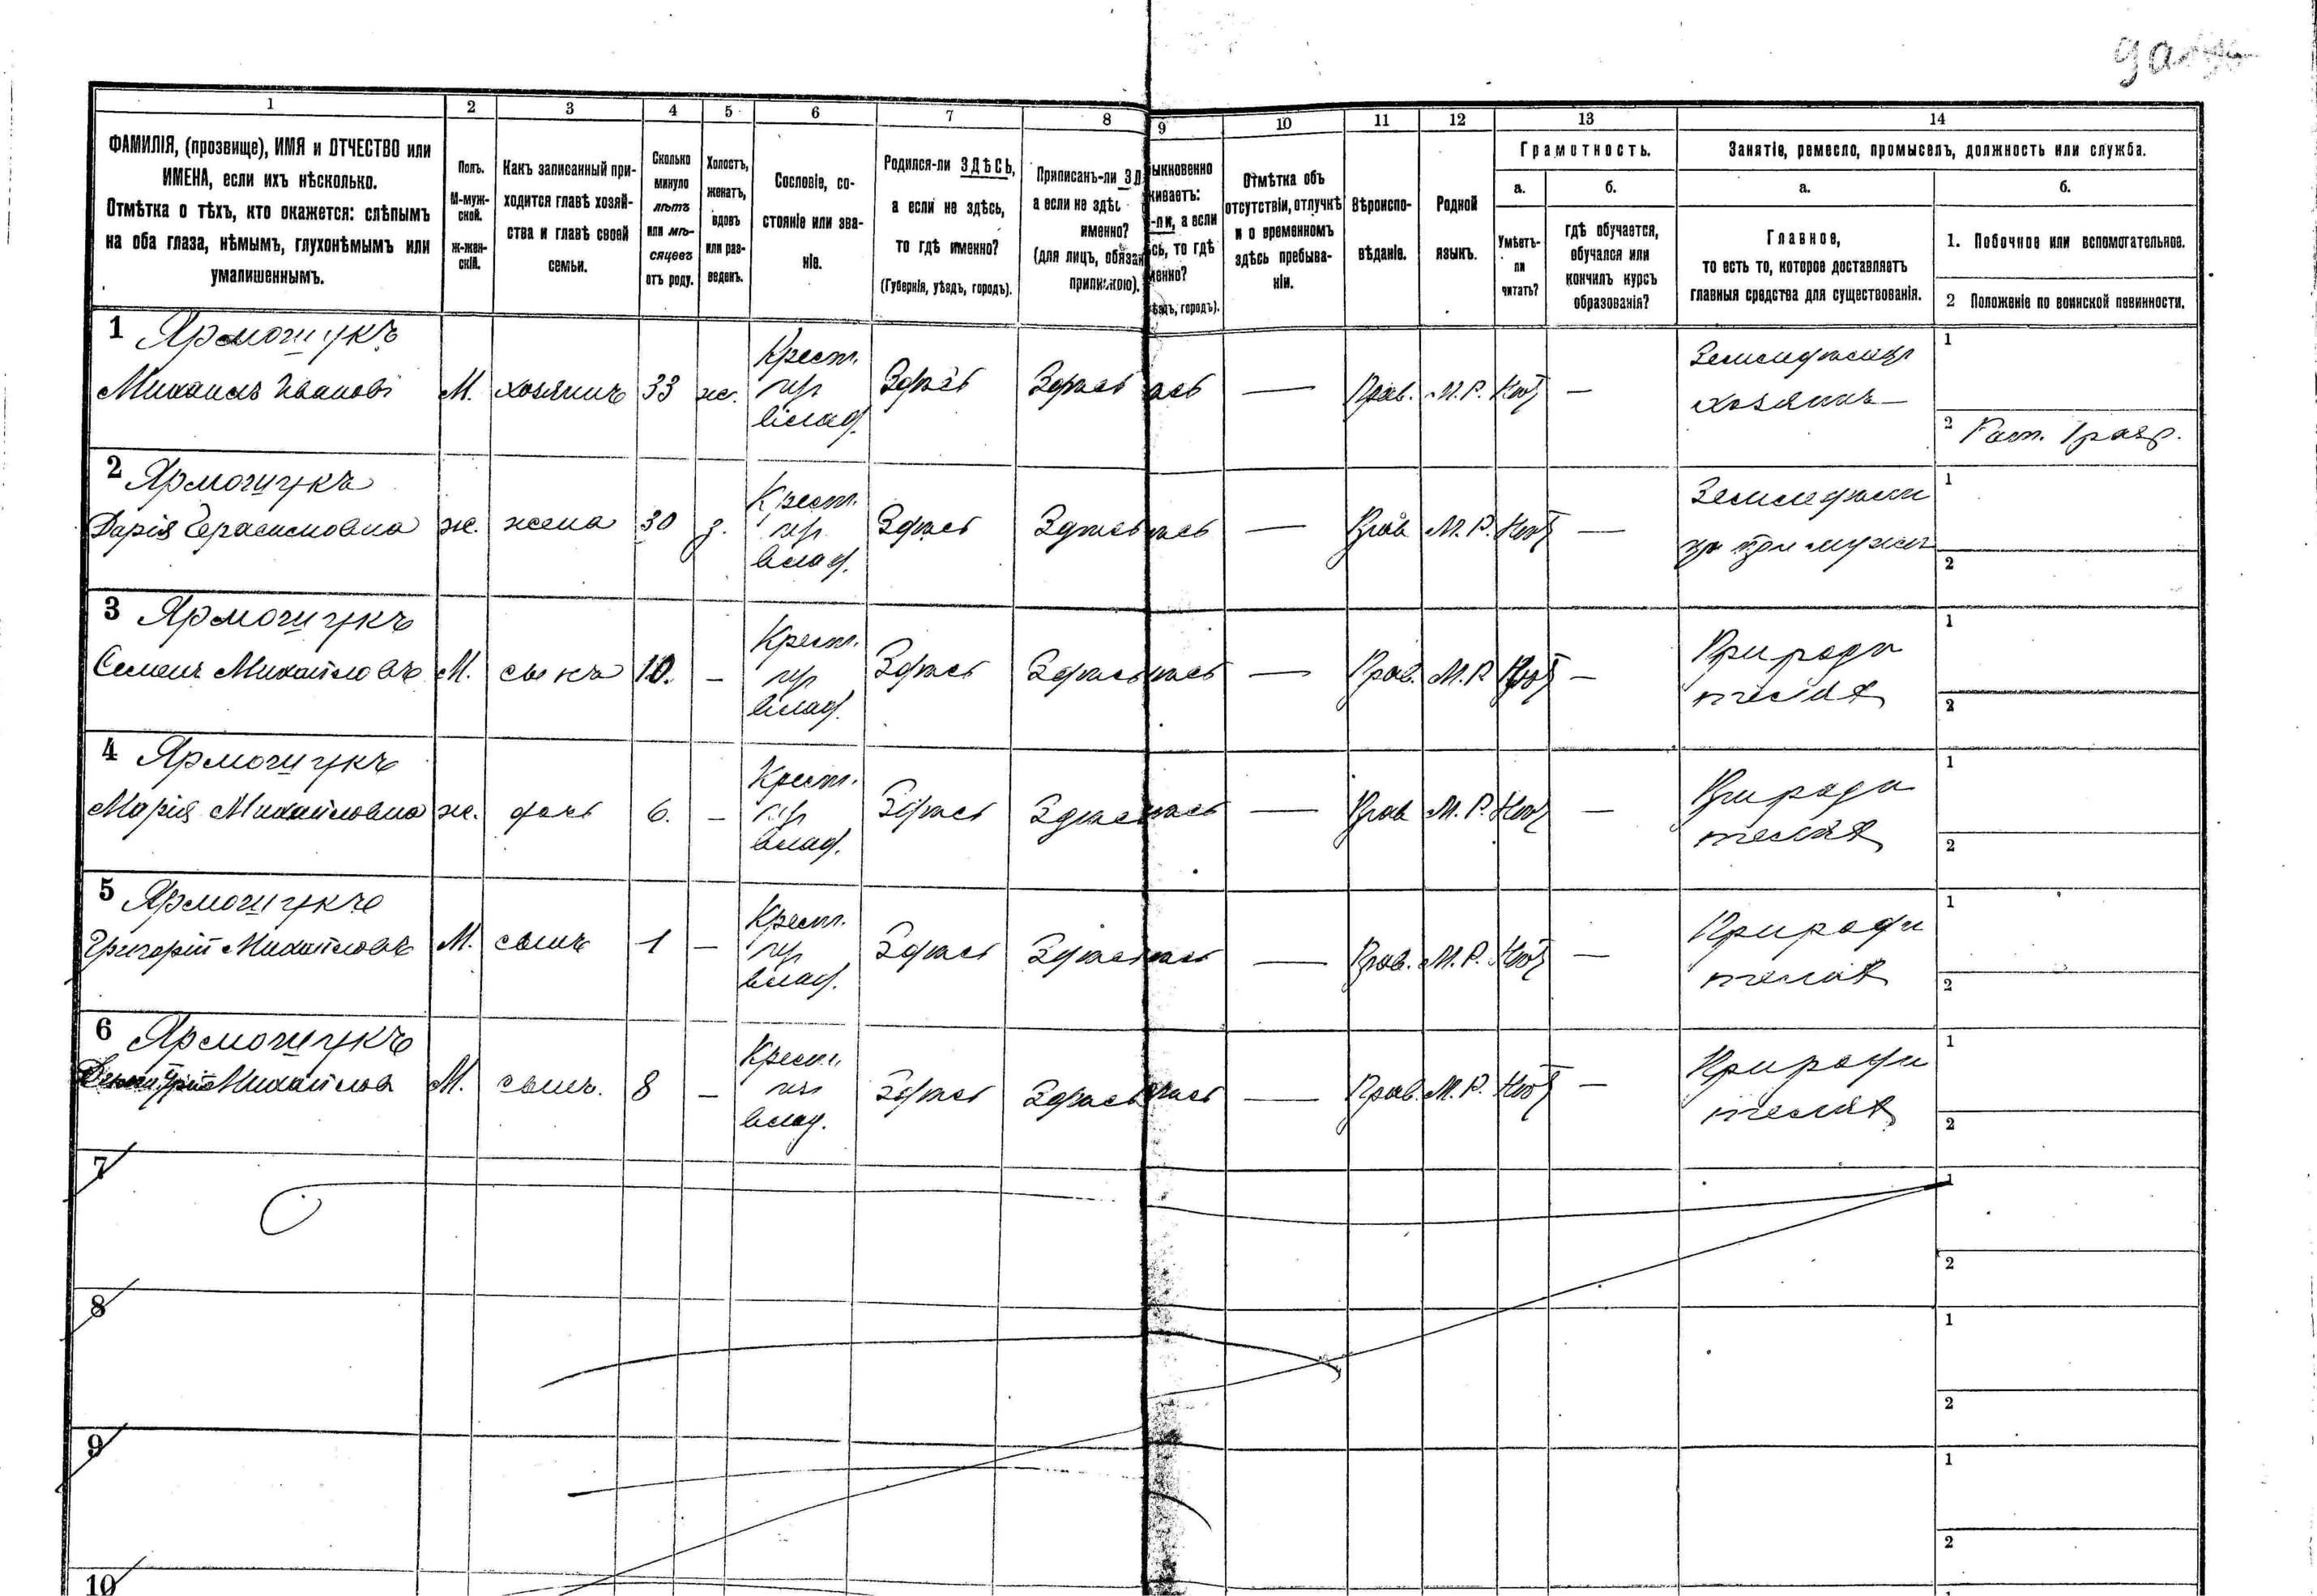 1 2 3 4 5 6 7 8 9 10 11 12 13 14
ФАМИЛІЯ, (прозвище), ИМЯ и ОТЧЕСТВО или
ИМЕНА, если ихъ нѣсколько.
Отмѣтка о тѣхъ, кто окажется: слѣпымъ
на оба глаза, нѣмымъ, глухонѣмымъ или
умалишеннымъ.
Полъ.
М-муж-
ской.
ж-жен-
скій.
Какъ записанный при-
ходится главѣ хозяй-
ства и главѣ своей
семьи.
Сколько
минуло
лѣтъ
или мѣ-
сяцевъ
отъ роду.
Холостъ,
женатъ,
вдовъ
или раз-
веденъ.
Сословіе, со-
стояніе или зва-
ніе.
Родился-ли ЗДѢСЬ,
а если не здѣсь,
то гдѣ именно?
(Губернія, уѣздъ, городъ).
Приписанъ-ли ЗД
а если не здѣс
именно?
(для лицъ, обязан
припискою).
ыкновенно
живаетъ:
-ли, а если
сь, то гдѣ
менно?
ѣздъ, городъ).
Отмѣтка объ
отсутствіи, отлучкѣ
и о временномъ
здѣсь пребыва-
ніи.
Вѣроиспо-
вѣданіе.
Родной
языкъ.
Грамотность.
а.
Умѣетъ-
ли
читать?
б.
гдѣ обучается,
обучался или
кончилъ курсъ
образованія?
Занятіе, ремесло, промыселъ, должность или служба.
а.
Главное,
то есть то, которое доставляетъ
главныя средства для существованія.
б.
1. Побочное или вспомогательное.
2 Положеніе по воинской повинности.
1 Ярмошукъ
Михаилъ Иванов М. хозяинъ 33 ж.
Крест.
влад.
Здѣсь Здѣсь ѣсь — Прав. М.Р. Нѣтъ —
хозяинъ
1
2 Рат. 1 разр.
2 Ярмощукъ
Дарія Герасимовна ж. жена 30 з.
Крест.
влад.
Здѣсь Здѣсь ѣсь — Прав М.Р. Нѣтъ —
при мужѣ
1
2
3 Ярмощукъ
Семенъ Михайловъ М. сынъ 10. —
Крест.
влад.
Здѣсь Здѣсь ѣсь — Прав. М.Р Нѣтъ —
При роди
теляхъ
1
2
4 Ярмощукъ
Марія Михайловна ж. дочь 6. —
Крест.
влад.
Здѣсь Здѣсь ѣсь — Прав М.Р. Нѣтъ —
При роди
теляхъ
1
2
5 Ярмощукъ
Григорій Михайловъ М. сынъ 1 —
Крест.
влад.
Здѣсь Здѣсь ѣсь — Прав. М.Р. Нѣтъ —
При роди
теляхъ
1
2
6 Ярмощукъ
Михайлов М. сынъ. 8 —
Крест.
влад.
Здѣсь Здѣсь ѣсь — Прав. М.Р. Нѣтъ —
При роди
теляхъ
1
2
7
1
2
8
1
2
9
1
2
10